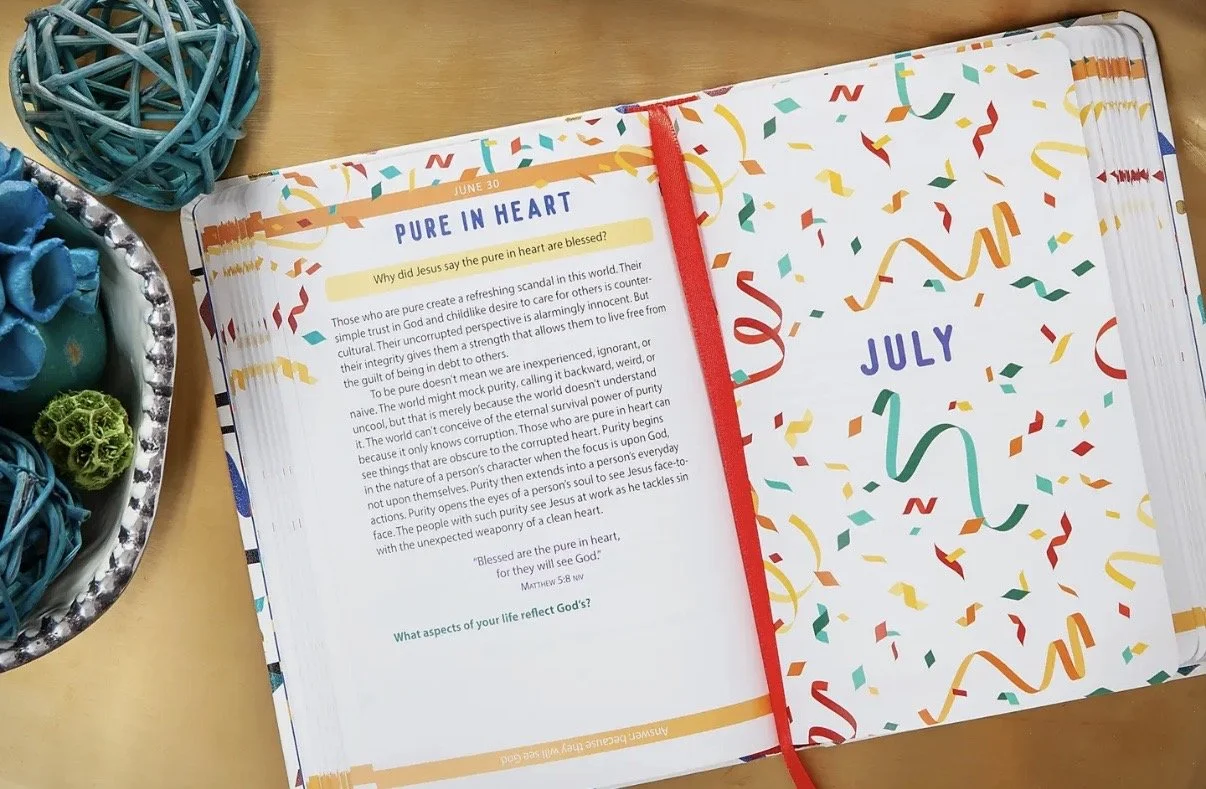 JUNE 30
PURE IN HEART
Why did Jesus say the pure in heart are blessed?
Those who are pure create a refreshing scandal in this world. Their
simple trust in God and childlike desire to care for others is counter-
cultural. Their uncorrupted perspective is alarmingly innocent. But
their integrity gives them a strength that allows them to live free from
the guilt of being in debt to others.
To be pure doesn't mean we are inexperienced, ignorant, or
naive. The world might mock purity, calling it backward, weird, or
uncool, but that is merely because the world doesn't understand
it. The world can't conceive of the eternal survival power of purity
because it only knows corruption. Those who are pure in heart can
see things that are obscure to the corrupted heart. Purity begins
in the nature of a person's character when the focus is upon God,
not upon themselves. Purity then extends into a person's everyday
actions. Purity opens the eyes of a person's soul to see Jesus face-to-
face. The people with such purity see Jesus at work as he tackles sin
with the unexpected weaponry of a clean heart.
"Blessed are the pure in heart,
for they will see God."
MATTHEW 5:8 NIV
What aspects of your life reflect God's?
Answer: because they will see God
JULY